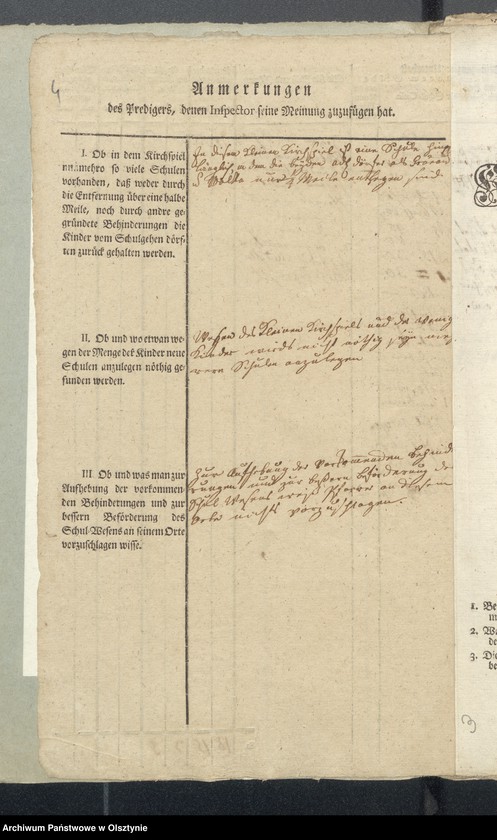 4
Anmerkungen
des Predigers, denen Inspector seine Meinung zuzufügen hat.
I. Ob in dem Kirchspiel
nunmehro so viele Schulen
vorhanden, daß weder durch
die Entfernung über eine halbe
Meile, noch durch andre ge-
gründete Behinderungen die
Kinder vom Schulgehen dörf-
ten zurück gehalten werden.
In diesem kleinen Kirchspiel ist eine Schule
in dem die beyden
nur ½ Meile entlegen sind
II. Ob und wo etwan we-
gen der Menge der Kinder neue
Schulen anzulegen nöthig ge-
funden werden.
Wegen des kleinen Kirchspiels und der wenig
Kinder wirds nicht nöthig seyn
Schulen anzulegen
III. Ob und was man zur
Aufhebung der vorkommen-
den Behinderungen und zur
bessern Beförderung des
Schul-Wesens an seinem Orte
vorzuschlagen wisse.
Zur Aufhebung der vorkommenden Behinde
rungen und zur bessern Beförderung des
Schul Wesens Pfarrer an diesem
Orte nichts vorzuschlagen.
1. Be
m
2. Wa
de
3. Die
be
3
Archiwum Państwowe w Olsztynie